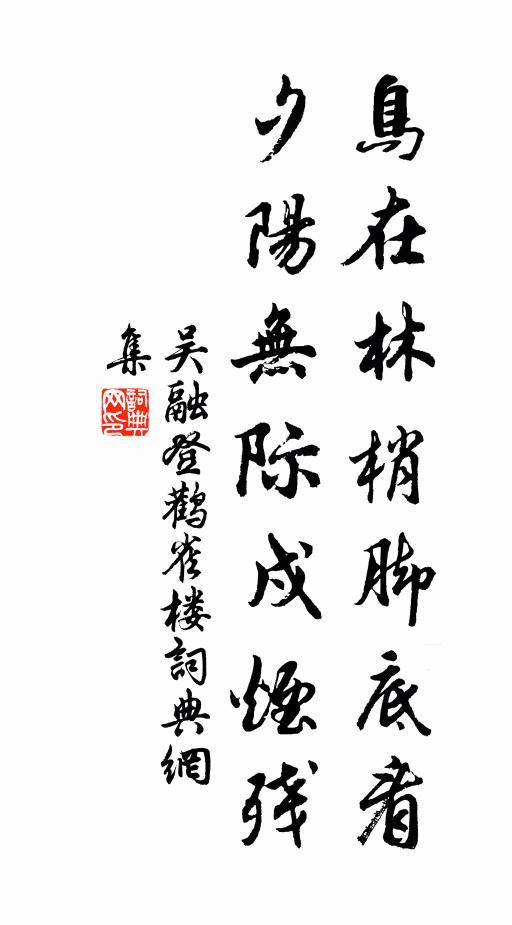 鳥在林梢脚底看
夕陽無际戍煙残
吴融登鹳雀楼詞典網
集
詞典网印